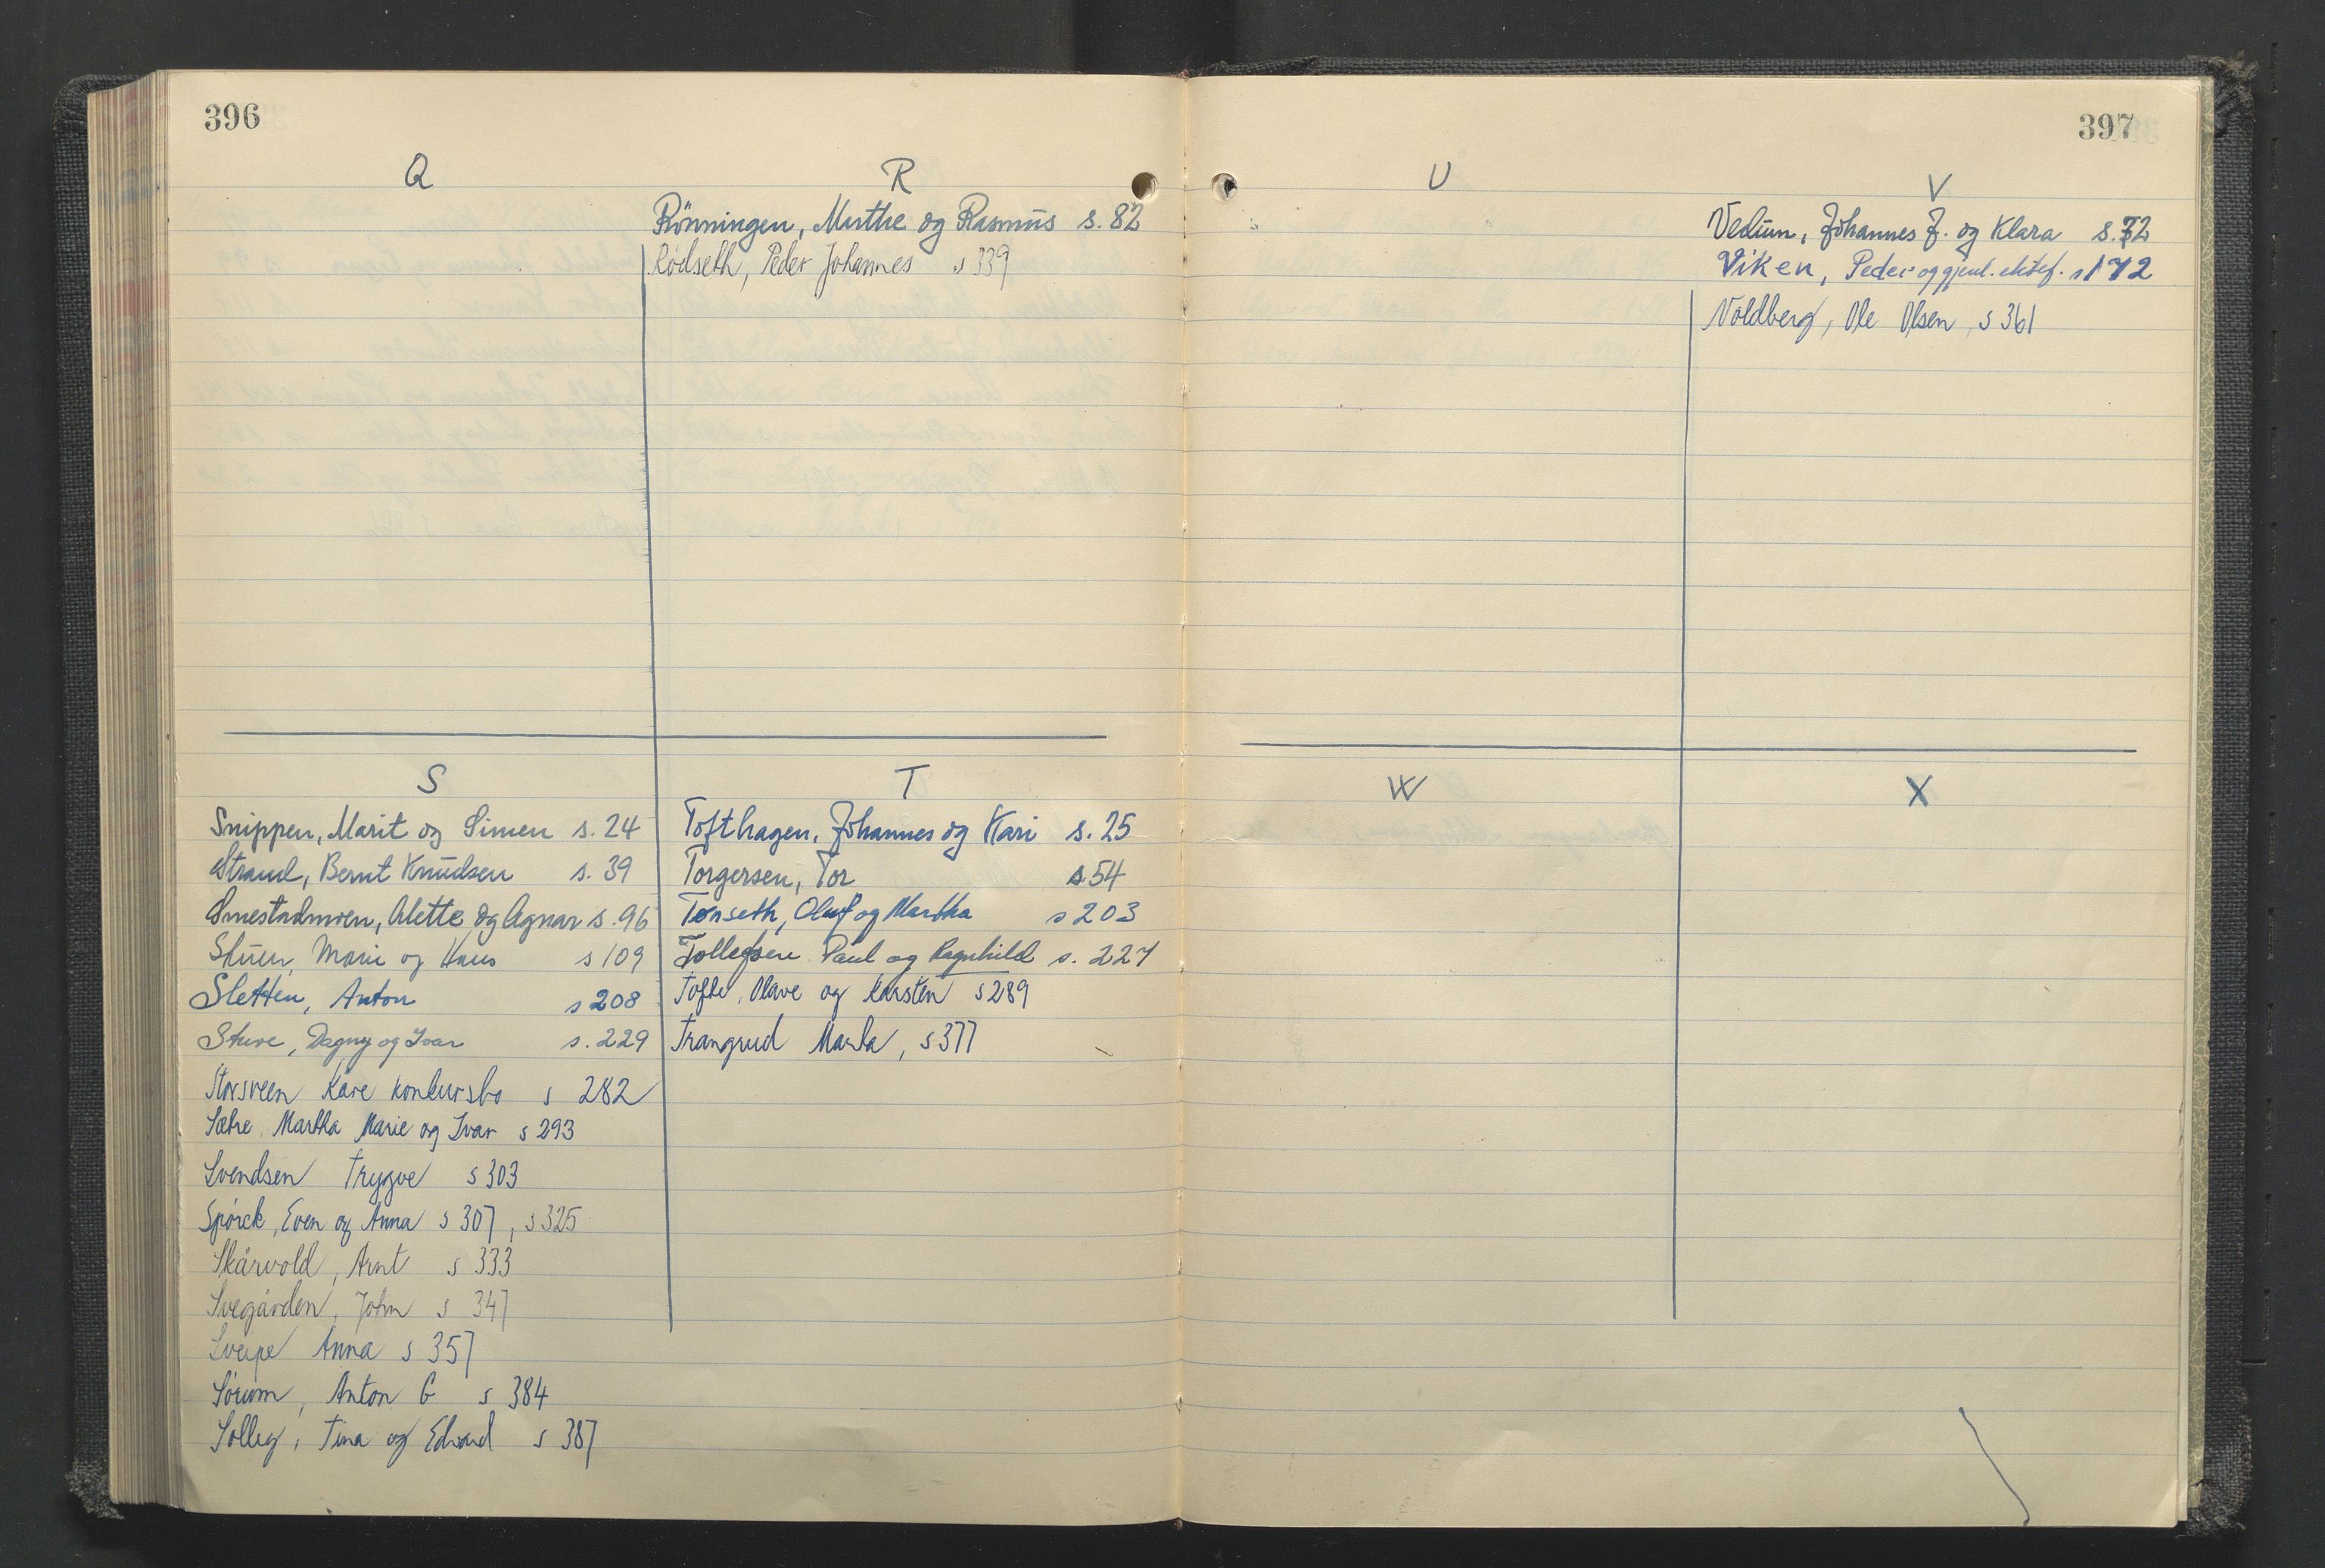 396
Q
R
Rönningen, Marthe og Rasmus s. 82
Rødseth, Peder Johannes s 339
S
Snippen, Marit og Simen s. 24
Strand, Bernt Knudsen s. 39
Smestadmoen, Alette og Agnar s. 96
Stuen, Marie og Hans s 109
Sletten, Anton s 208
Stuve, Dagny og Ivar s. 229
Storsveen Kåre konkursbo s 282
Sætre Martha Marie og Ivar s 293
Svendsen Trygve s 303
Spørck, Even og Anna s 307, s 325
Skårvold, Arnt s 333
Svegården, John s 347
Sveipe Anna s 357
Sørum, Anton G s 384
Solley, Tina og Edvard s 387
T
Tofthagen, Johannes og Kari s. 25
Torgersen, Tor s 54
Tønseth, Oluf og Martha s 203
Tollefsen Paul og Ragnhild s. 227
Tofte, Olave og Karsten s 289
Trangrud Marta, s 377
397
U
V
Vedum, Johannes J. og Klara s. 72
Viken, Peder og gjenl. ektef. s 172
Voldberg, Ole Olsen, s 361
W
X